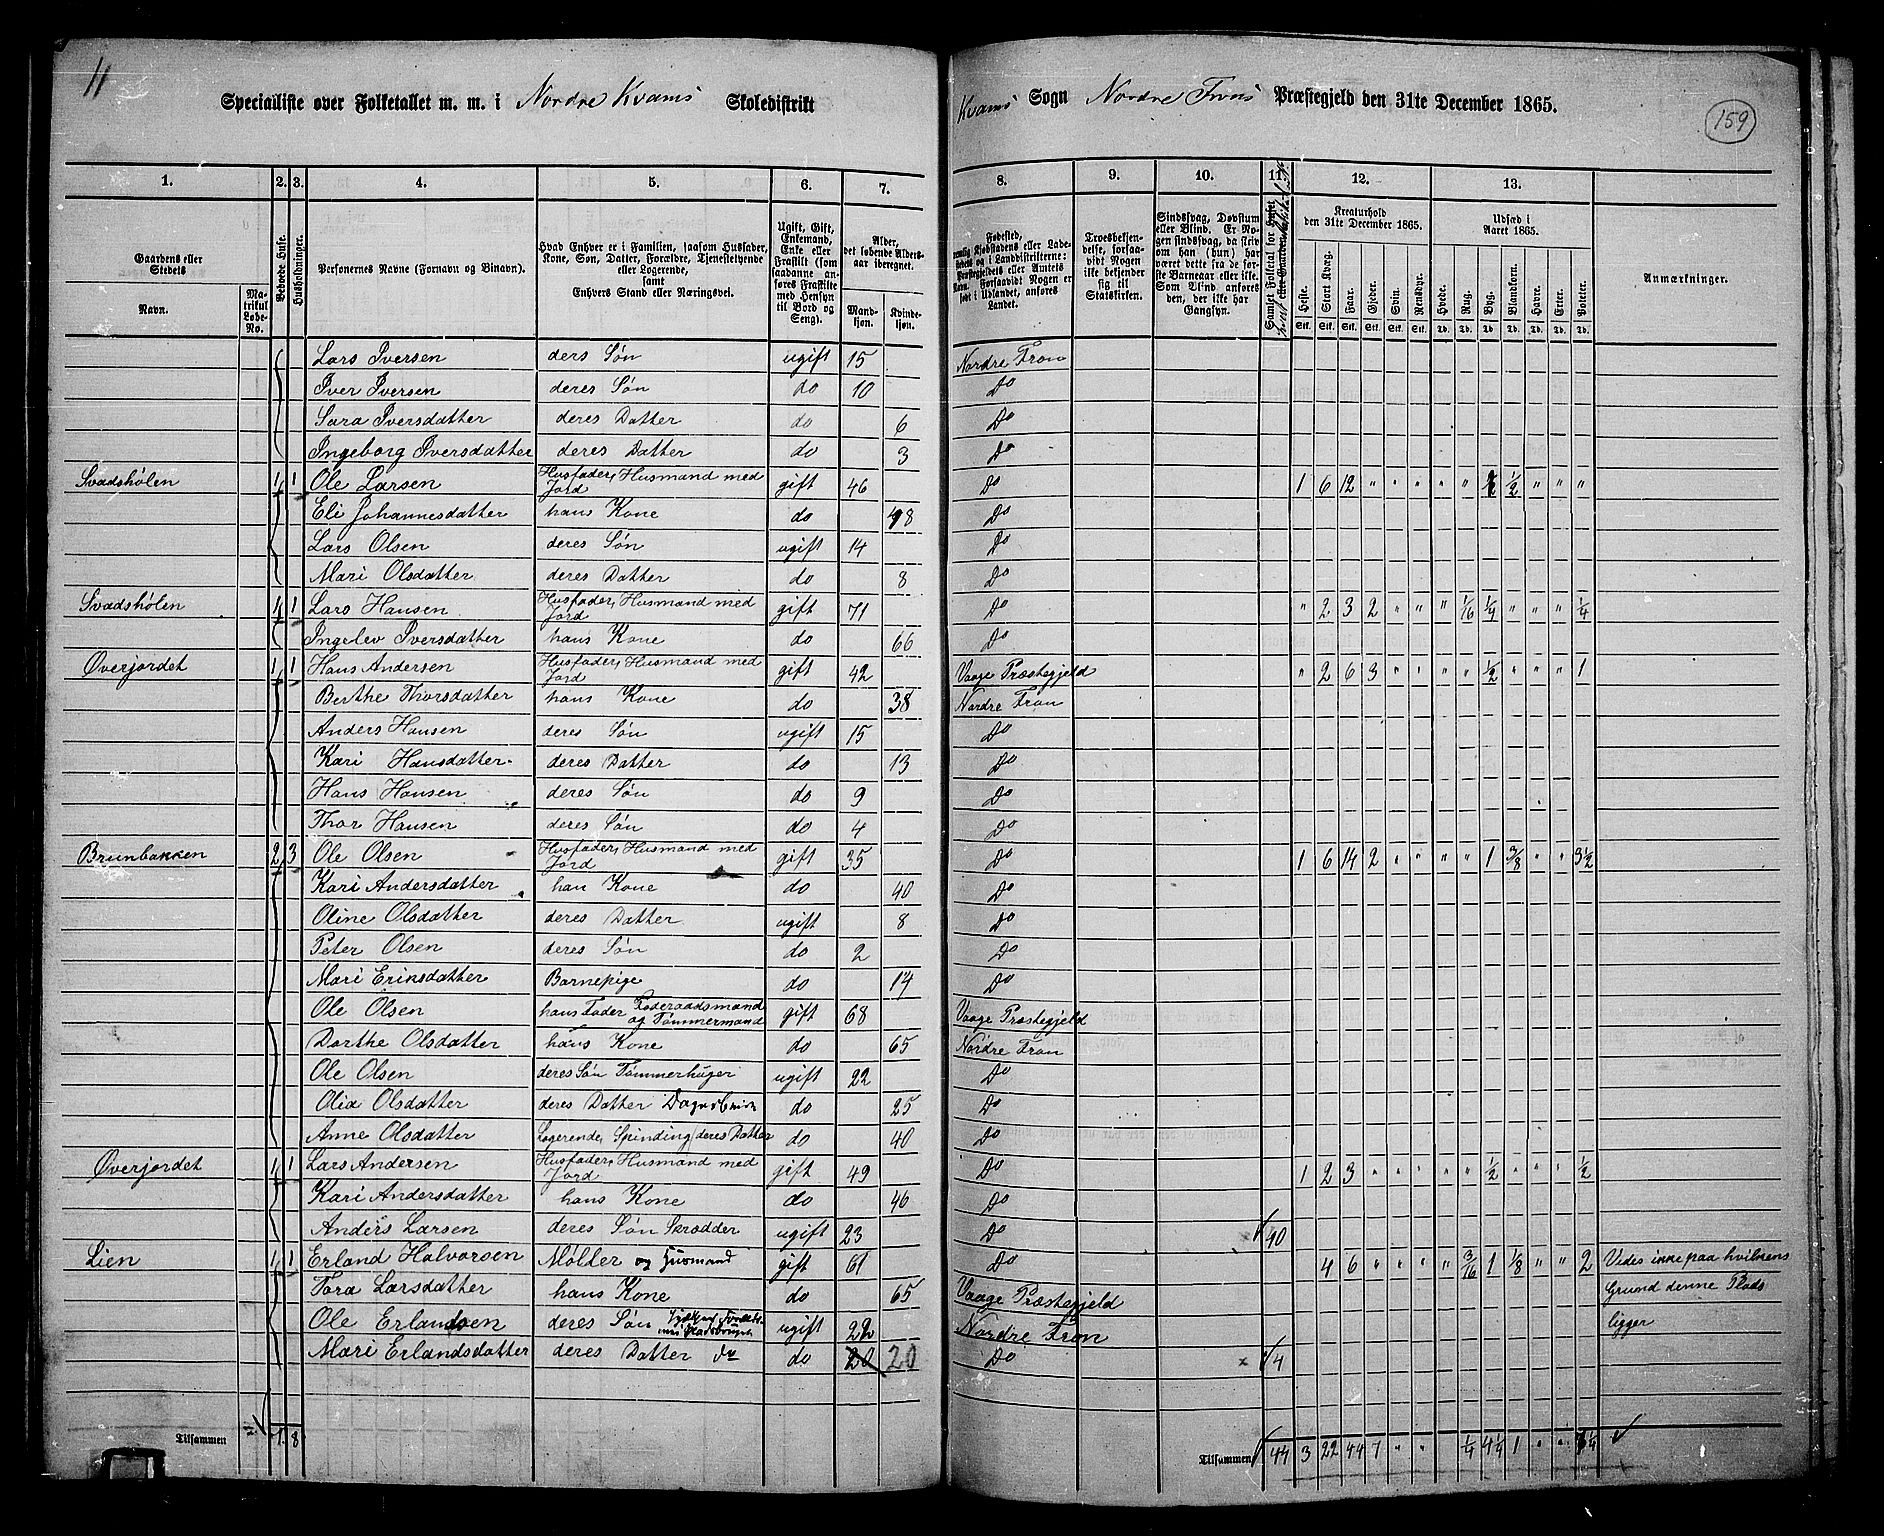 11
Specialliste over Folketallet m. m. i Nordre Kvams Skoledistrikt
Kvams Sogn Nordre Frons Præstegjeld den 31te December 1865.
159
1. 2. 3. 4. 5. 6. 7. 8. 9. 10. 11. 12. 13.
Gaardens eller Stedets
Navn.
Matrikul Løbe-No.
Beboede Huse.
Husholdninger.
Personernes Navne (Fornavn og Binavn).
Hvad Enhver er i Familien, saasom Husfader,
Kone, Søn, Datter, Forældre, Tjenestetyende
eller Logerende,
samt
Enhvers Stand eller Næringsvei.
Ugift, Gift,
Enkemand,
Enke eller
Fraskilt (som
saadanne anføres
Fraskilte
med Hensyn
til Bord og
Seng).
Alder,
det løbende Aldersaar iberegnet.
Mandkjøn.
Kvindekjøn.
Fødested,
Troesbekjendelse,
forsaavidt
Nogen
ikke bekjender
sig til
Statskirken.
Sindssvag, Døvstum
eller Blind. Er Nogen
sindssvag, da skriv
om han (hun) har
været dette fra de første
Barneaar eller ikke.
Som Blind anføres
den, der ikke har
Gangsyn.
Kreaturhold
den 31te December 1865.
Heste. Stort Kvæg. Faar. Gjeder. Svin. Rensdyr.
Udsæd i
Aaret 1865.
Hvede. Rug. Byg. Blandkorn. Havre. Erter. Poteter.
Anmærkninger.
Lars Iversen ders Søn ugift 15 Nordre Fron
Iver Iversen deres Søn do 10 Do
Sara Iversdatter deres Datter do 6 Do
Ingeborg Iversdatter deres Datter do 3 Do
Svadshølen 1 1 Ole Larsen Husfader, Husmand med Jord gift 46 Do 1 6 12 " " " " " ½ " " "
Eli Johannesdatter hans Kone do 48 Do
Lars Olsen deres Søn ugift 14 Do
Mari Olsdatter deres Datter do 8 Do
Svadshølen 1 1 Lars Hansen Husfader, Husmand med Jord gift 71 Do " 2 3 2 " " " 1/16 ¼ " " " ¼
Ingelev Iversdatter hans Kone do 66 Do
Øverjordet 1 1 Hans Andersen Husfader, Husmand med Jord gift 42 Vaage Præstegjeld " 2 6 3 " " " " ½ " " " 1
Berthe Thorsdatter hans Kone do 38 Nordre Fron
Anders Hansen deres Søn ugift 15 Do
Kari Hansdatter deres Datter do 13 Do
Hans Hansen deres Søn do 9 Do
Thor Hansen deres Søn do 4 Do
Brunbakken 2 3 Ole Olsen Husfader, Husmand med Jord gift 35 Do 1 6 14 2 " " " " 1 3/8 " " 3½
Kari Andersdatter han Kone do 40 Do
Oline Olsdatter deres Datter ugift 8 Do
Peter Olsen deres Søn do 2 Do
Mari Eriksdatter Barnepige do 14 Do
Ole Olsen hans Fader Føderaadsmand og Tømmermand gift 68 Vaage Præstegjeld
Dorthe Olsdatter hans Kone do 65 Nordre Fron
Ole Olsen deres Søn Tømmerhuger ugift 22 Do
Olia Olsdatter deres Datter do 25 Do
Anne Olsdatter Logerende, Spinding deres Datter do 40 Do
Øverjordet 1 1 Lars Andersen Husfader, Husmand med Jord gift 49 Do 1 2 3 " " " " " ½ " " " ½
Kari Andersdatter hans Kone do 46 Do
Anders Larsen deres Søn Skrædder ugift 23 Do 40
Lien 1 1 Erland Halvorsen Møller og Husmand gift 61 Do 4 6 " " " " 3/16 1 1/8 " " 2 Vides ikke paa hvilkens
Tora Larsdatter hans Kone do 65 Vaage Præstegjeld Grund denne Plads
Ole Erlandsen deres Søn ugift 22 Nordre Fron ligger
Mari Erlandsdatter deres Datter do do 20 20 Do 4
Tilsammen 7 8
Tilsammen 44 3 22 44 7 " " ¼ 4¼ 1 " "